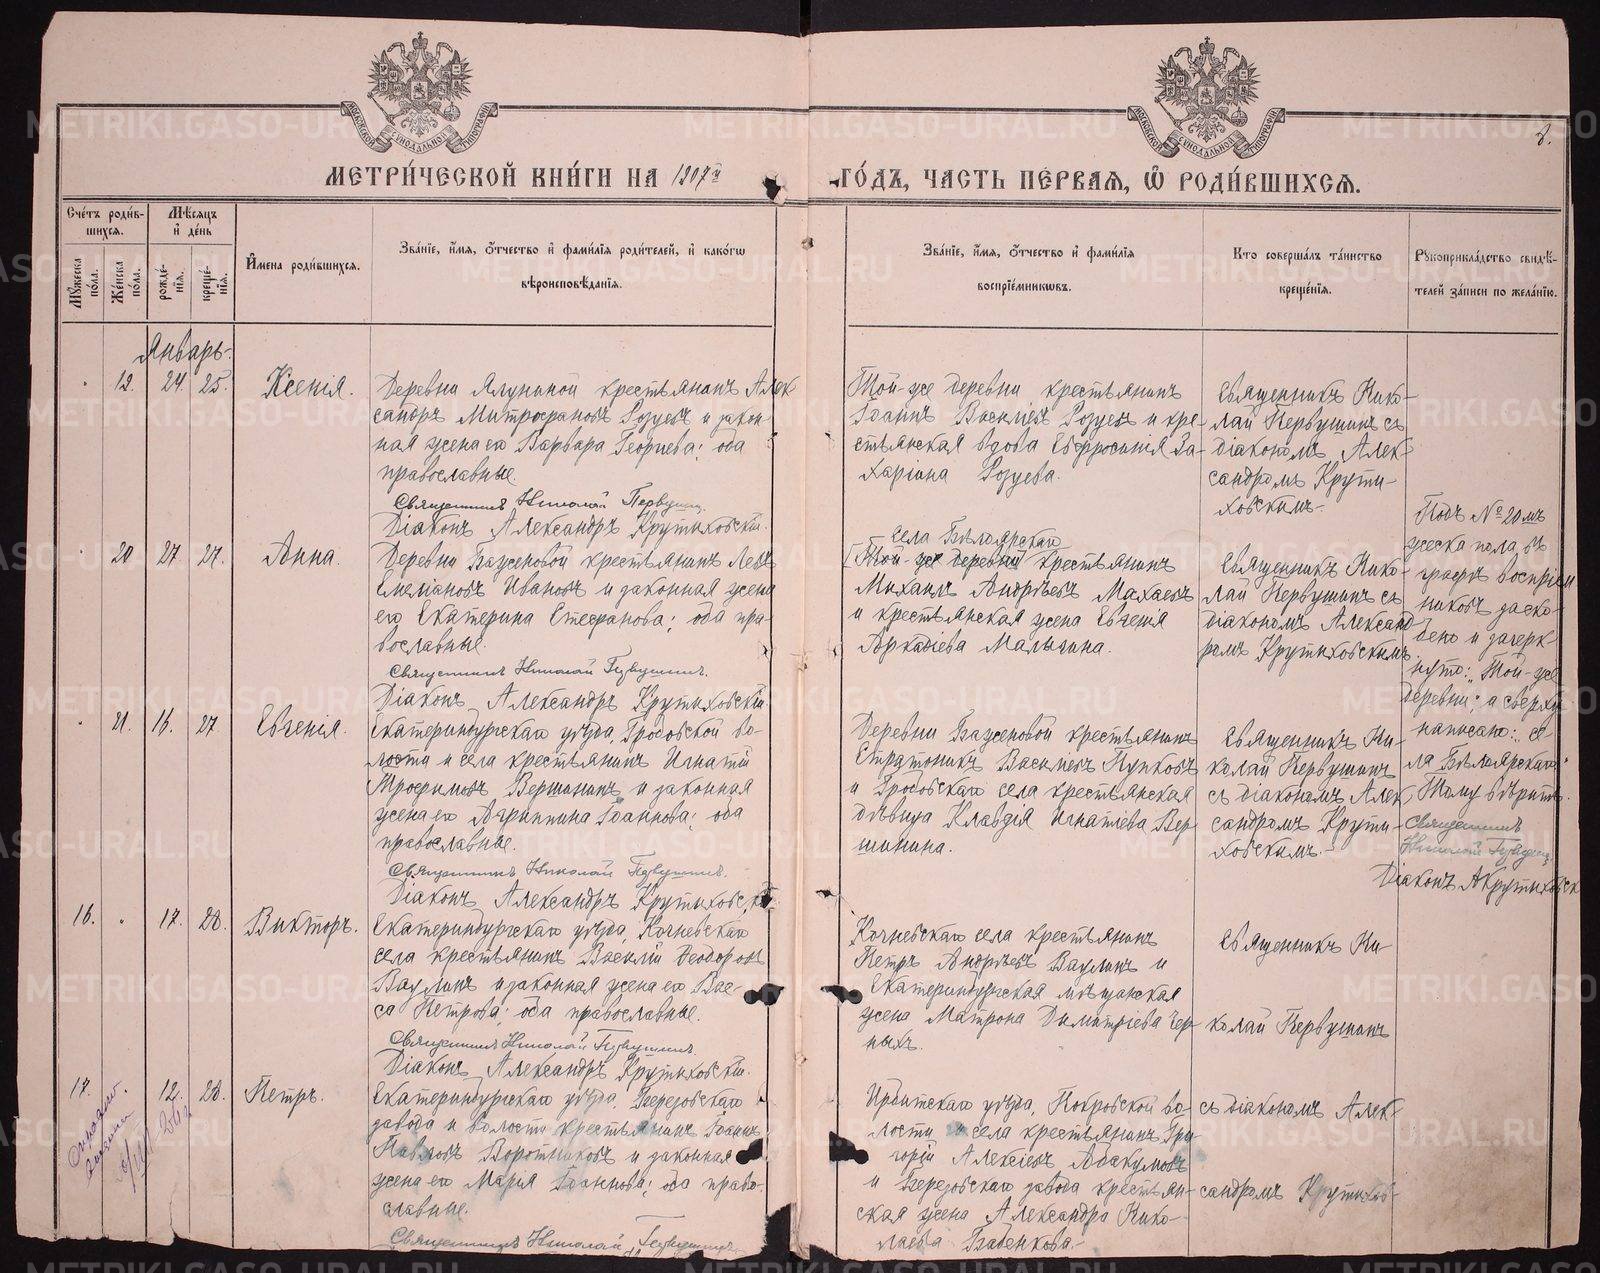 МОСКОВСКОЙ СѴНОДАЛЬНОЙ ТИПОГРАФІИ
МОСКОВСКОЙ СѴНОДАЛЬНОЙ ТИПОГРАФІИ
8.
МЕТРИ́ЧЕСКОЙ КНИ́ГИ НА 1907й ГО́ДЪ, ЧАСТЬ ПЕ́РВАЯ, Ѽ РОДИ́ВШИХСЯ.
Сче́тъ роди́вшихся.
Мꙋ́жеска по́ла.
Же́нска по́ла.
Мѣ́сяцъ и҆ де́нь
рожде́нїя.
креще́нїя.
И҆мена роди́вшихся.
Зва́нїе, и҆́мя, ѻ҆́тчество и҆ фами́лїя роди́телей, и҆ како́гѡ
вѣроисповѣ́данїя.
Зва́нїе, и҆́мя, ѻ҆́тчество и҆ фами́лїя
воспрїе́мникѡвъ.
Кто соверша́лъ та́инство
креще́нїя.
Рꙋкоприкла́дство свидѣ́-
телей за́писи по жела́нїю.
Январь.
19. 24. 25. Ксенія.
Деревни Ялуниной крестьянинъ Алек
сандръ Митрофановъ Розуевъ и закон-
ная жена его Варвара Георгіева; оба
православные.
Священникъ Николай Первушинъ
Діаконъ Александръ Крутиховскій.
Той-же деревни крестьянинъ
Іоаннъ Васильевъ Розуевъ и кре-
стьянская вдова Евфросинія За-
харіина Розуева.
Священникъ Нико-
лай Первушинъ съ
діакономъ Алек-
сандромъ Крути-
ховскимъ.
20 27 27. Анна.
Деревни Баженовой крестьянинъ Левъ
Емеліановъ Ивановъ и законная жена
его Екатерина Стефанова; оба пра-
вославные.
Священникъ Николай Первушинъ.
Діаконъ Александръ Крутиховскій.
села Бѣлоярскаго
[Той-же деревни] крестьянинъ
Михаилъ Андреевъ Махаевъ
и крестьянская жена Евгенія
Аркадіева Малыгина.
Священникъ Нико-
лай Первушинъ съ
діакономъ Александ
ромъ Крутиховскимъ.
Подъ № 20 мъ
женска пола, въ
графѣ воспріем
никовъ заско-
блено и зачерк-
нуто: "Той-же
деревни", а сверху
написано: "се-
ла Бѣлоярскаго".
Тому вѣрить.
Священникъ
Николай Первушинъ
Діаконъ А Крутиховск
21. 16. 27 Евгенія.
Екатеринбургскаго уѣзда, Гробовской во-
лости и села крестьянинъ Игнатій
Трофимовъ Вершининъ и законная
жена его Агриппина Іоаннова; оба
православные.
Священникъ Николай Первушинъ.
Діаконъ Александръ Крутиховскій
Деревни Баженовой крестьянинъ
Стратоникъ Васильевъ Пупковъ
и Гробовскаго села крестьянская
дѣвица Клавдія Игнатіева Вер-
шинина.
Священникъ Ни-
колай Первушинъ
съ діакономъ Алек
сандромъ Крути-
ховскимъ.
16. 17. 28. Викторъ.
Екатеринбургскаго уѣзда, Кочневскаго
села крестьянинъ Василій Ѳеодоровъ
Ваулинъ и законная жена его Васс-
са Петрова; оба православные.
Священникъ Николай Первушинъ.
Діаконъ Александръ Крутиховскій.
Кочневскаго села крестьянинъ
Петръ Андреевъ Ваулинъ и
Екатеринбургская мѣщанская
жена Матрона Димитріева Чер-
ныхъ.
Священникъ Ни-
колай Первушинъ
17. 12. 28. Петръ.
Екатеринбургскаго уѣзда, Березовскаго
завода и волости крестьянинъ Іоаннъ
Павловъ Воротниковъ и законная
жена его Марія Іоаннова; оба право-
славные.
Священникъ Николай Первушинъ
Ирбитскаго уѣзда, Покровской во-
лости и села крестьянинъ Гри-
горій Алексіевъ Абакумовъ
и Березовскаго завода крестьян-
ская жена Александра Нико-
лаева Бабенкова.
съ діакономъ Алек-
сандромъ Крутихов-